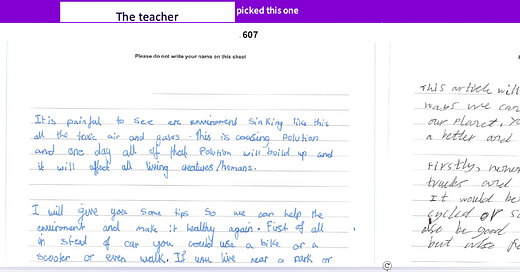 The teacher picked this one
607
Please do not write your name on this sheet
It is painful to see are enviroment sinking like this
all the toxic air and gases. This is causing polution
and one day all of that Polution will build up and
it will affect all living creatures/humans.
I will give you some tips so we can help the
enviroment and make it healthy again. First of all
in stead of car you could use a bike or a
scooter or even walk. If you live near a park or
This article will
ways we can
our planet. Yo
a better and
Firstly,
trucks and
It would be
cycled or s
also be good
but also